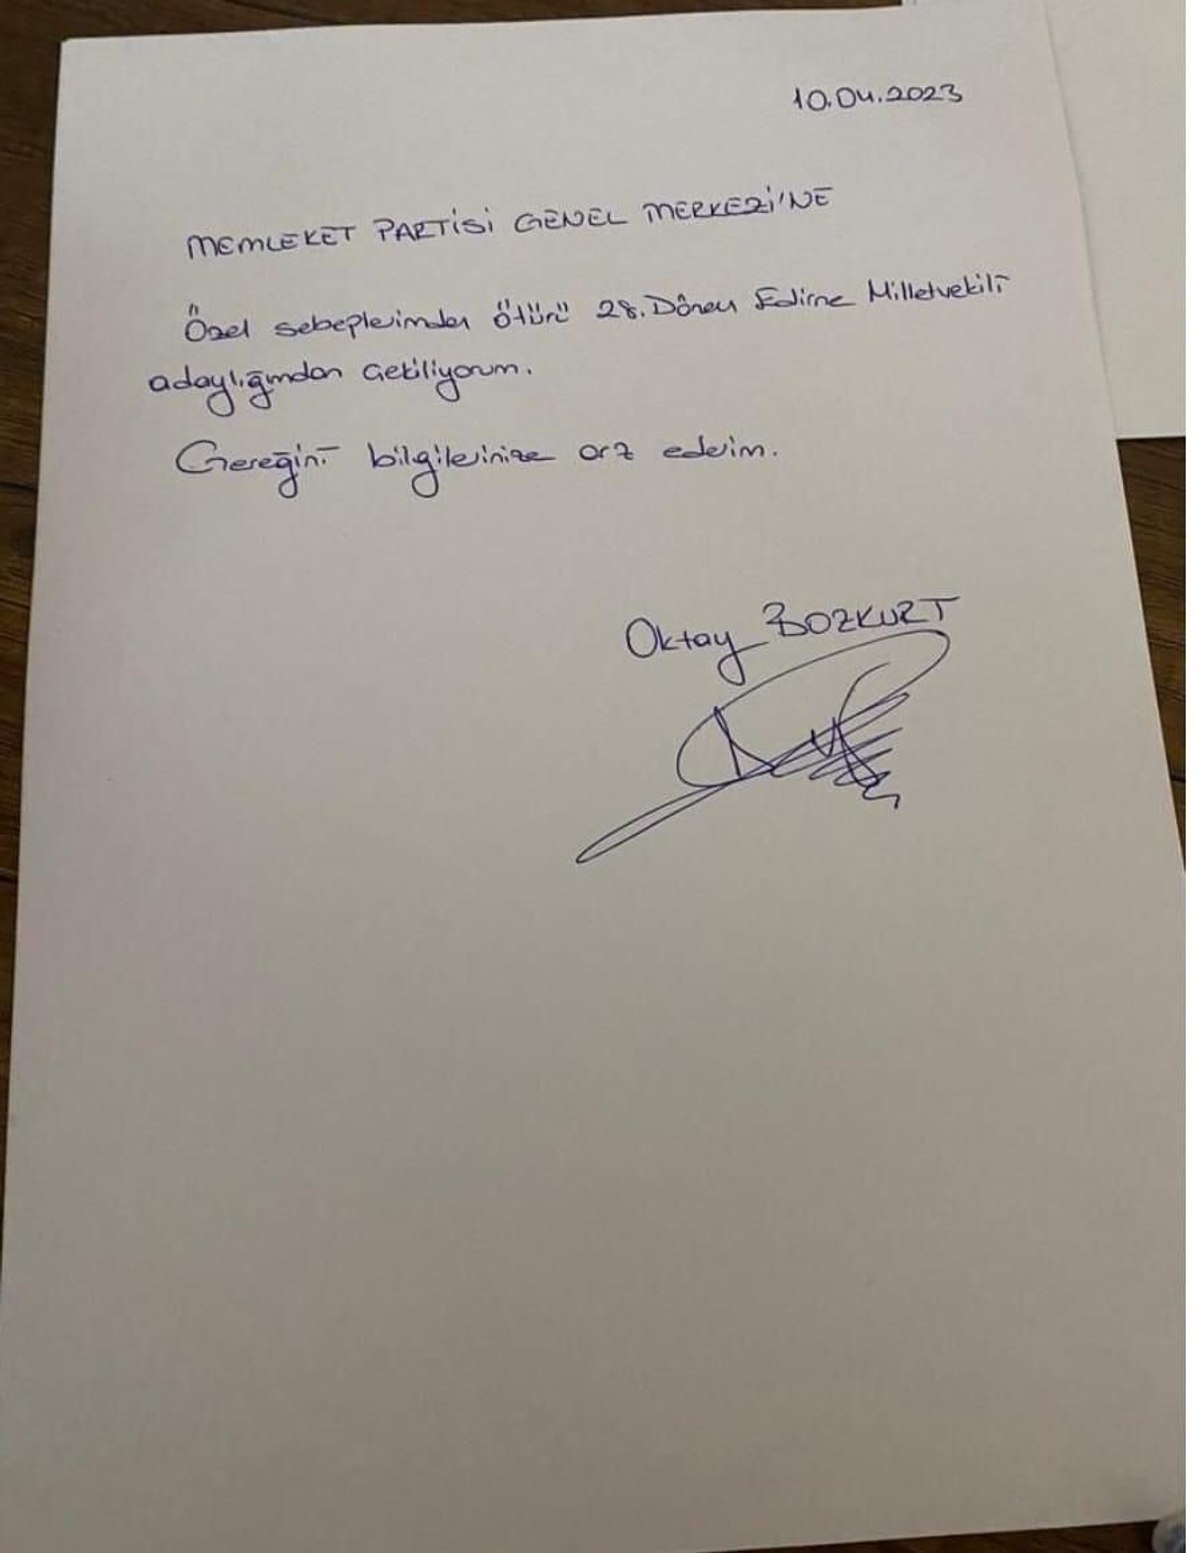 10.04.2023
MEMLEKET PARTİSİ GENEL MERKEZİ'NE
Özel sebeplerimden ötürü 28. Dönem Edirne Milletvekili
adaylığımdan çekiliyorum.
Gereğini bilgilerinize arz ederim.
Oktay BOZKURT